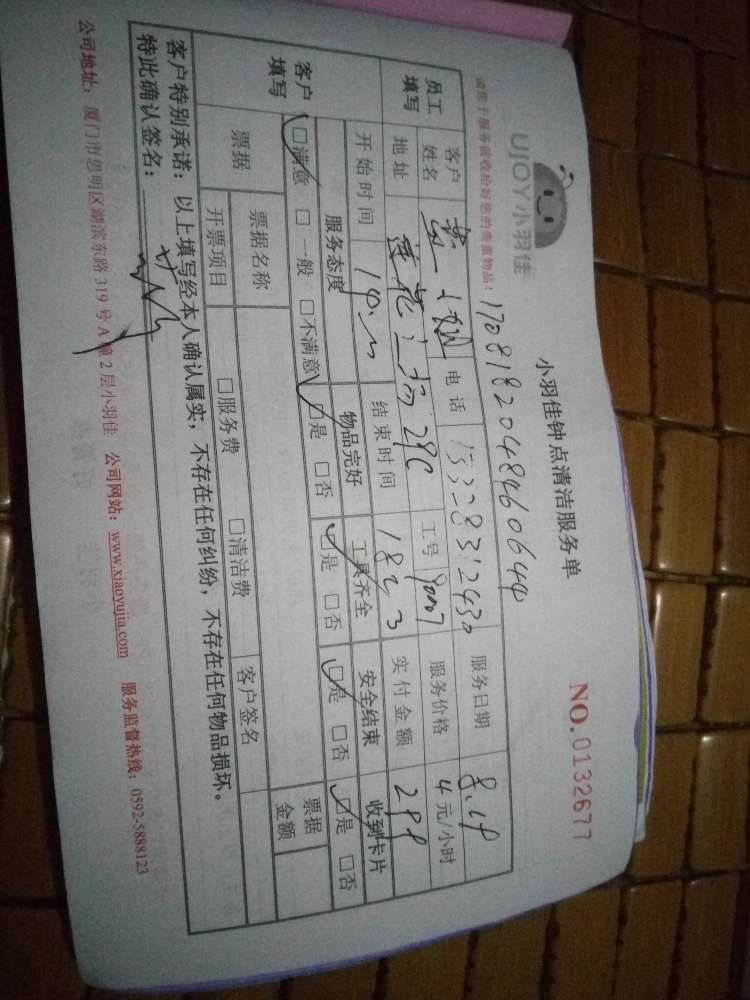 UJOY小羽佳
小羽佳钟点清洁服务单
NO.0132677
170818204846 0644
请您于服务前收拾好您的贵重物品!
员工填写 客户姓名 黄 电话 15328312430 服务日期 8.19
地址 莲花 29C 工号 服务价格 4 元/小时
开始时间 结束时间 实付金额
客户填写 服务态度 物品完好 工具齐全 安全结束 收到卡片
□满意 □一般 □不满意 □是 □否 □是 □否 □是 □否 □是 □否
票据 票据名称 客户签名 票据金额
开票项目 □服务费 □清洁费
客户特别承诺:以上填写经本人确认属实,不存在任何纠纷,不存在任何物品损坏。
特此确认签名:
公司地址:厦门市思明区湖滨东路 319 号 A 幢 2 层小羽佳 公司网站:www.xiaoyujia.com 服务监督热线:0592-5888123